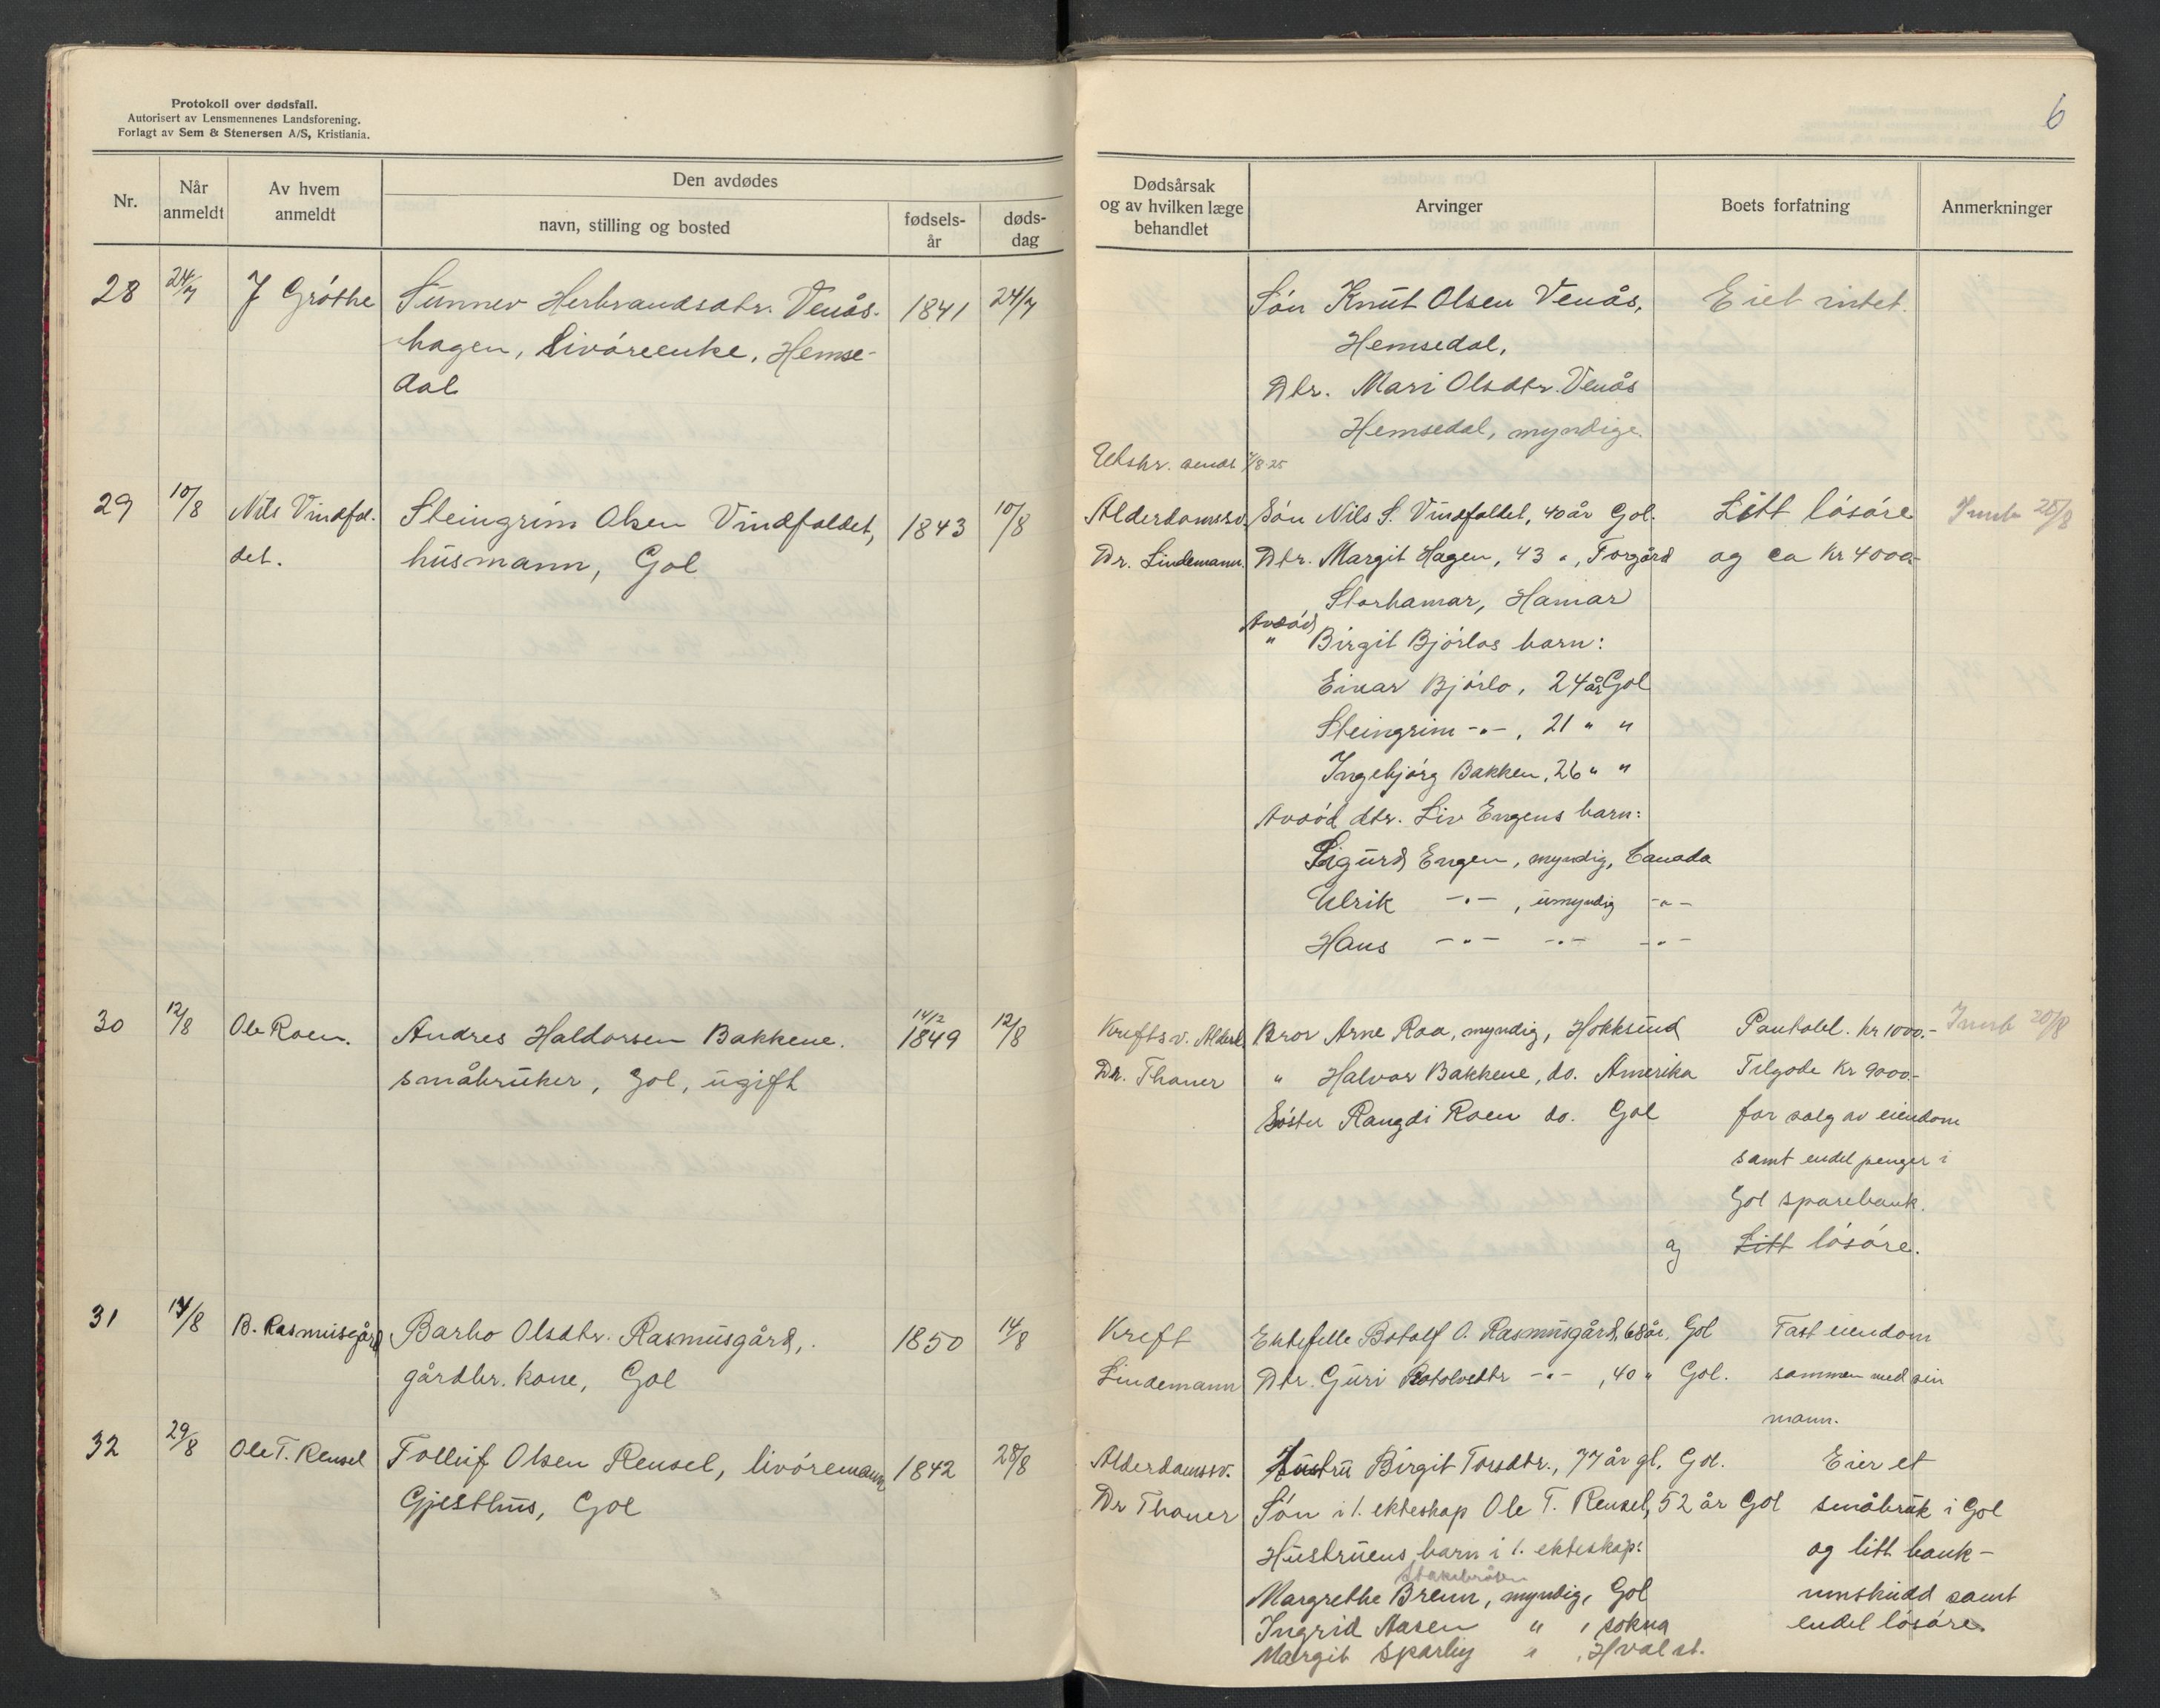 Protokoll over dødsfall.
Autorisert av Lensmennenes Landsforening.
Forlagt av Sem & Stenersen A/S, Kristiania.
6
Nr.
Når anmeldt
Av hvem anmeldt
Den avdødes
navn, stilling og bosted
fødsels-år
døds-dag
Dødsårsak og av hvilken læge behandlet
Arvinger
Boets forfatning
Anmerkninger
28 24/7 J Gróthe Sunnev Herbrandsdtr. Venås- 1841 24/7
hagen, Livóreenke, Hemse-
dal
Són Knut Olsen Venås, Eiet intet.
Hemsedal,
Dtr. Mari Olsdtr. Venås
Hemsedal, myndige.
Utskr. sendt 7/8 25
29 10/8 Nils Vindfol- Steingrim Olsen Vindfaldet, 1843 10/8
det. husmann, Gol
Alderdomssv. Són Nils S. Vindfaldet, 40 år Gol. Litt lósóre 25/8
Dr. Lindemann. Dtr. Margit Hagen, 43 ", Torgård og ca Kr 4000-
Storhamar, Hamar
Avdód
" Birgit Bjórlos barn:
Einar Bjórlo, 24 år Gol
Steingrim -"-, 21 " "
Ingebjórg Bakken, 26 " "
Avdód dtr. Liv Engens barn:
Sigurd Engen, myndig, Canada
Ulrik -"-, umyndig -"-
Hans -"- -"- -"-
30 12/8 Ole Roen. Andres Haldorsen Bakkene. 14/2 1849 12/8
småbruker, Gol, ugift
Kreft Bror Arne Roa, myndig, Hokksund Pantobl. kr 1000.- 20/8
Dr. Thaner " Halvor Bakkene, do. Amerika Tilgode Kr 9000.-
Sóster Rangdi Roen do. Gol for salg av eiendom
samt endel penger i
Gol sparebank.
og Litt lósóre.
31 14/8 B. Rasmusgård Barbo Olsdtr. Rasmusgård, 1850 14/8
gårdbr. kone, Gol
Kreft Ektefelle Botolf O. Rasmusgård, 68 år, Gol Fast eiendom
Lindemann Dtr. Guri Botolvsdtr -"-, 40 " Gol. sammen med sin
mann.
32 29/8 Ole T. Rensel Tolleif Olsen Rensel, livóremann 1842 28/8
Gjesthus, Gol
Alderdomssv. Hustru Birgit Torsdtr., 77 år gl, Gol. Eier et
Dr Thaner Són i 1. ekteskap Ole T. Rensel, 52 år Gol småbruk i Gol
Hustruens barn i 1. ekteskap: og litt bank-
Margrethe Brenn, myndig, Gol innskudd samt
Ingrid Aasen " , Sokna endel lósóre.
Margit Sparby " , Hval st.